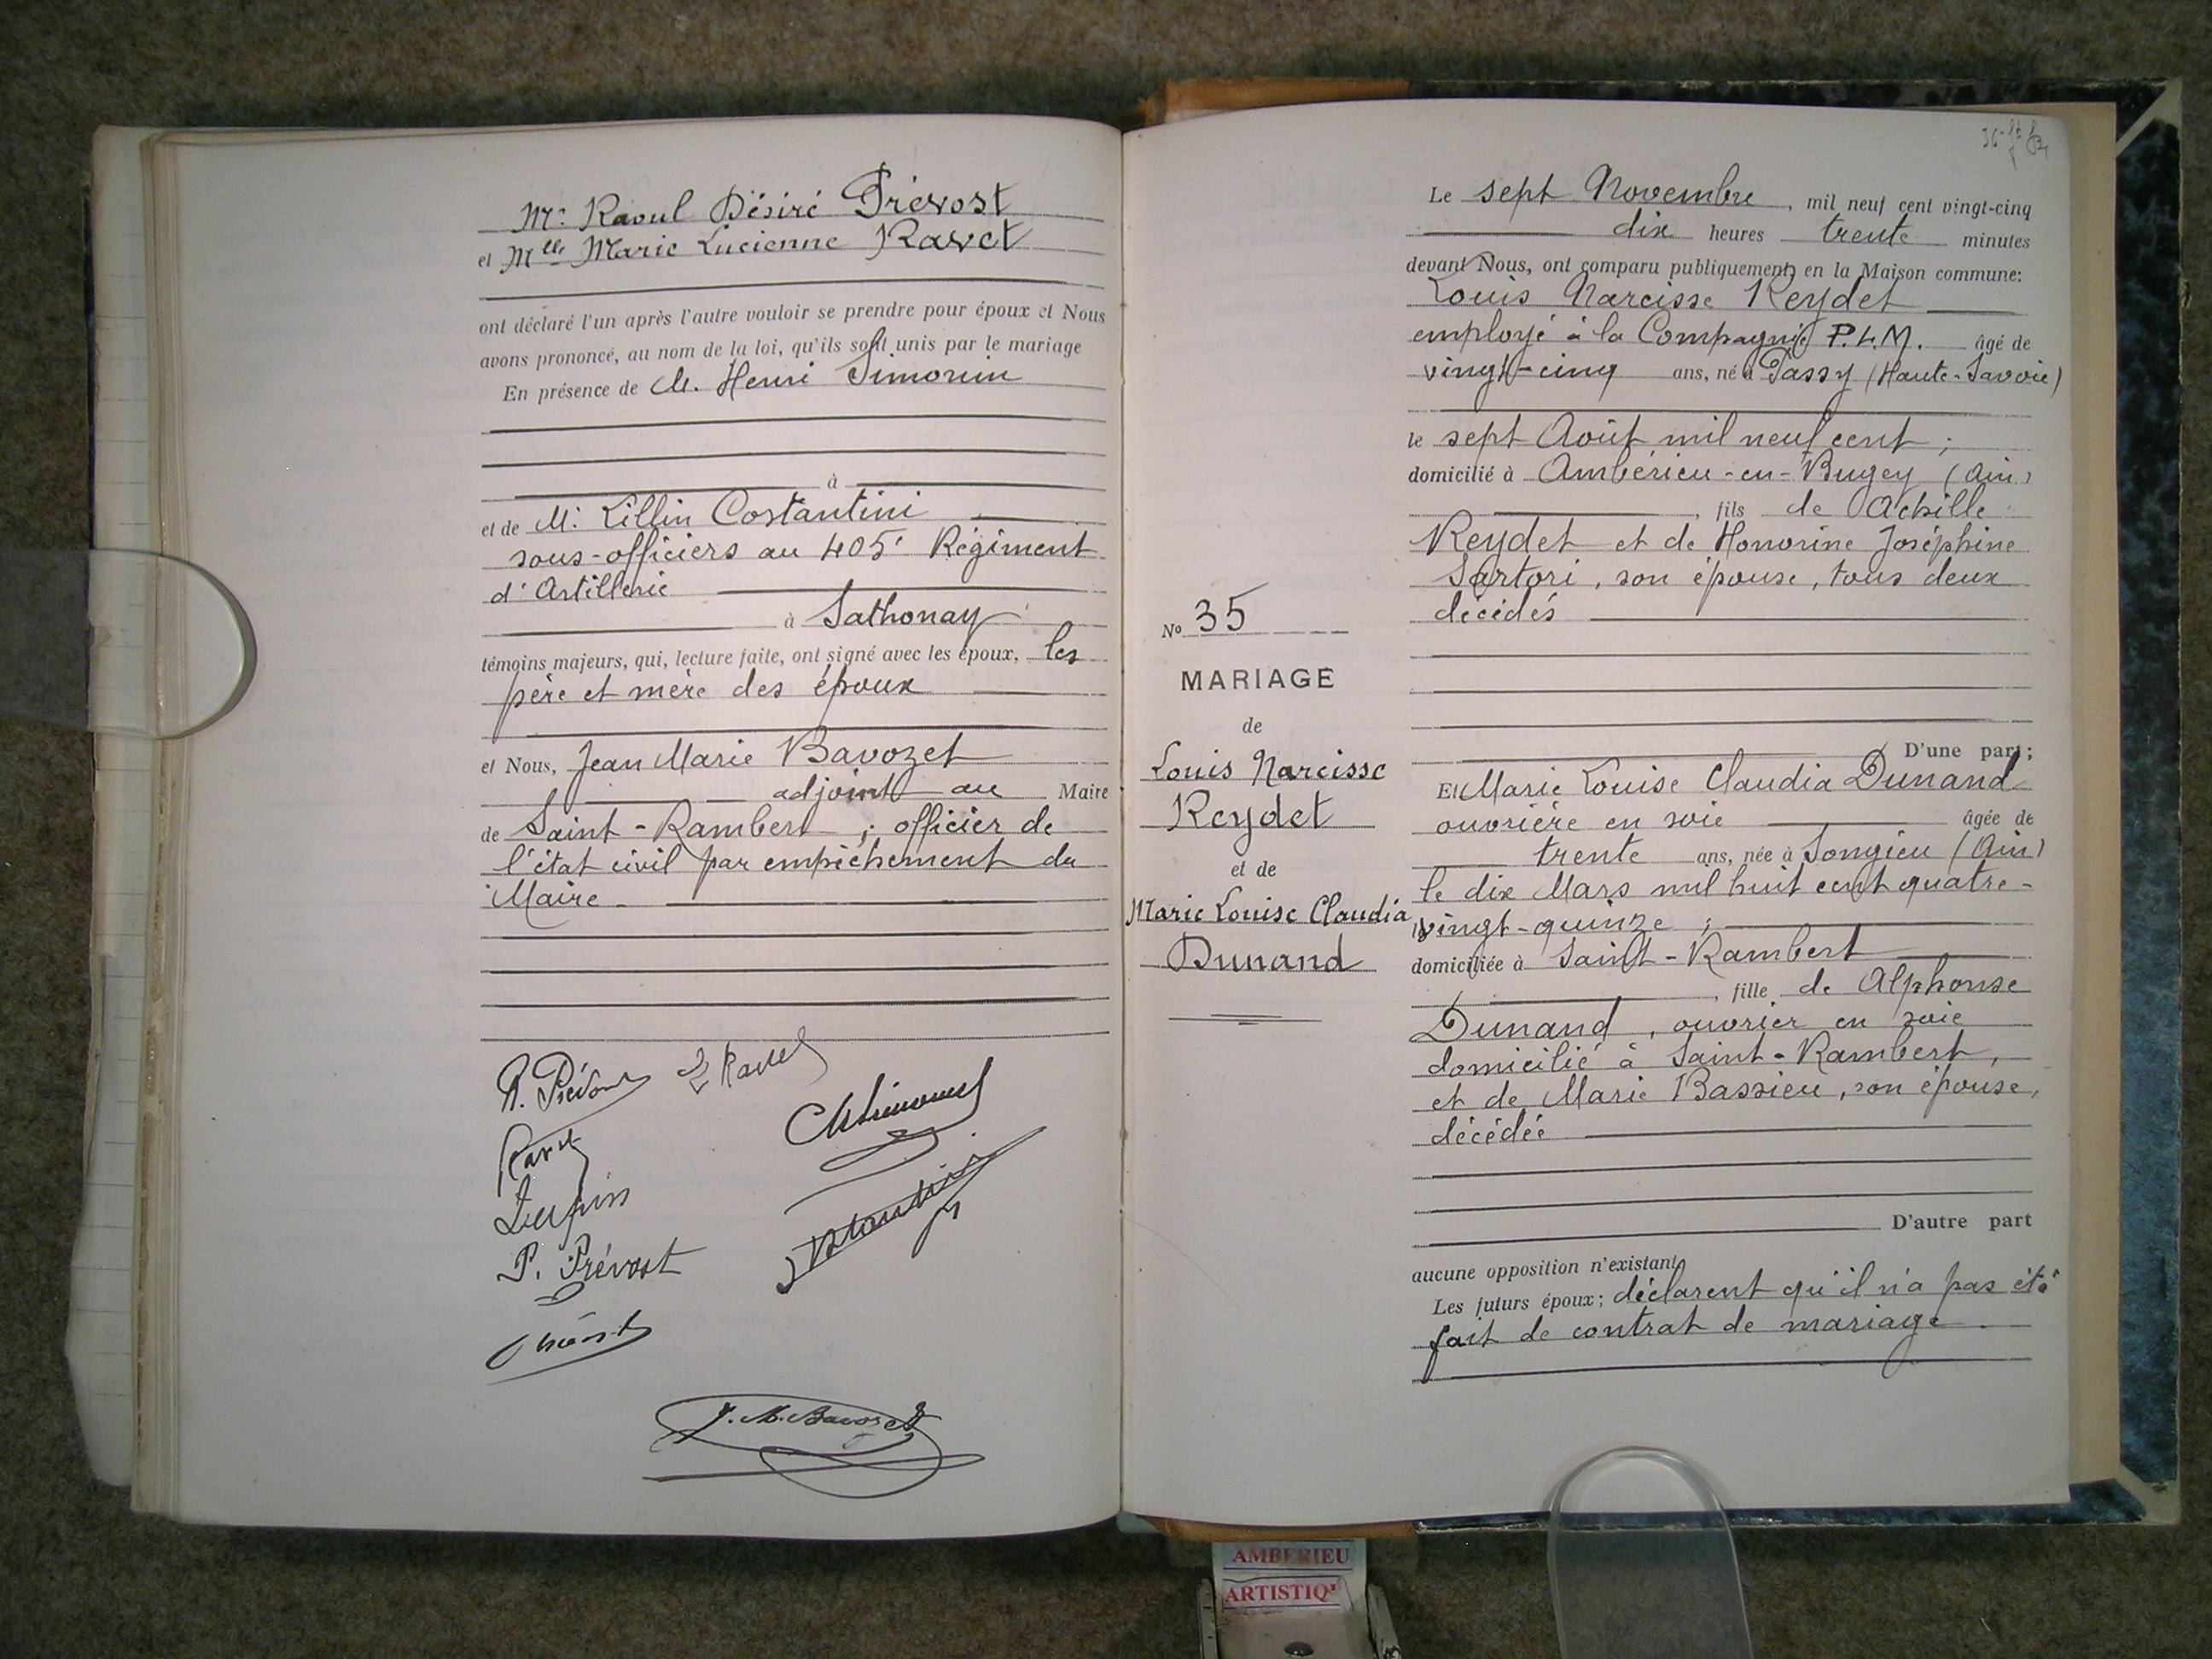 Mr. Raoul Désiré Prévost
et Mlle Marie Lucienne Ravet
ont déclaré l'un après l'autre vouloir se prendre pour époux et Nous
avons prononcé, au nom de la loi, qu'ils sont unis par le mariage
En présence de M. Henri Simonin
à
et de M. Lillin Costantini
sous-officiers au 405e Régiment
d'Artillerie
à Sathonay
témoins majeurs, qui, lecture faite, ont signé avec les époux, les
père et mère des époux
et Nous, Jean Marie Bavozet
adjoint au Maire
de Saint-Rambert ; officier de
l'état civil par empêchement du
Maire
R. Prévost L Ravet
Ravet
P. Prévost
J. M. Bavozet
Le sept Novembre, mil neuf cent vingt-cinq
dix heures trente minutes
devant Nous, ont comparu publiquement en la Maison commune:
Louis Narcisse Reydet
employé à la Compagnie P.L.M. âgé de
vingt-cinq ans, né à Passy (Haute-Savoie)
le sept Août mil neuf cent ;
domicilié à Ambérieu-en-Bugey (Ain)
, fils de Achille
Reydet et de Honorine Joséphine
Sartori, son épouse, tous deux
décédés
No 35
MARIAGE
de
Louis Narcisse
Reydet
et de
Marie Louise Claudia
Dunand
D'une part;
Et Marie Louise Claudia Dunand
ouvrière en soie âgée de
trente ans, née à Songieu (Ain)
le dix Mars mil huit cent quatre-
vingt-quinze ;
domiciliée à Saint-Rambert
, fille de Alphonse
Dunand, ouvrier en soie
domicilié à Saint-Rambert,
et de Marie Bassieu, son épouse,
décédée
D'autre part
aucune opposition n'existant
Les futurs époux; déclarent qu'il n'a pas été
fait de contrat de mariage.
AMBERIEU
ARTISTIQ